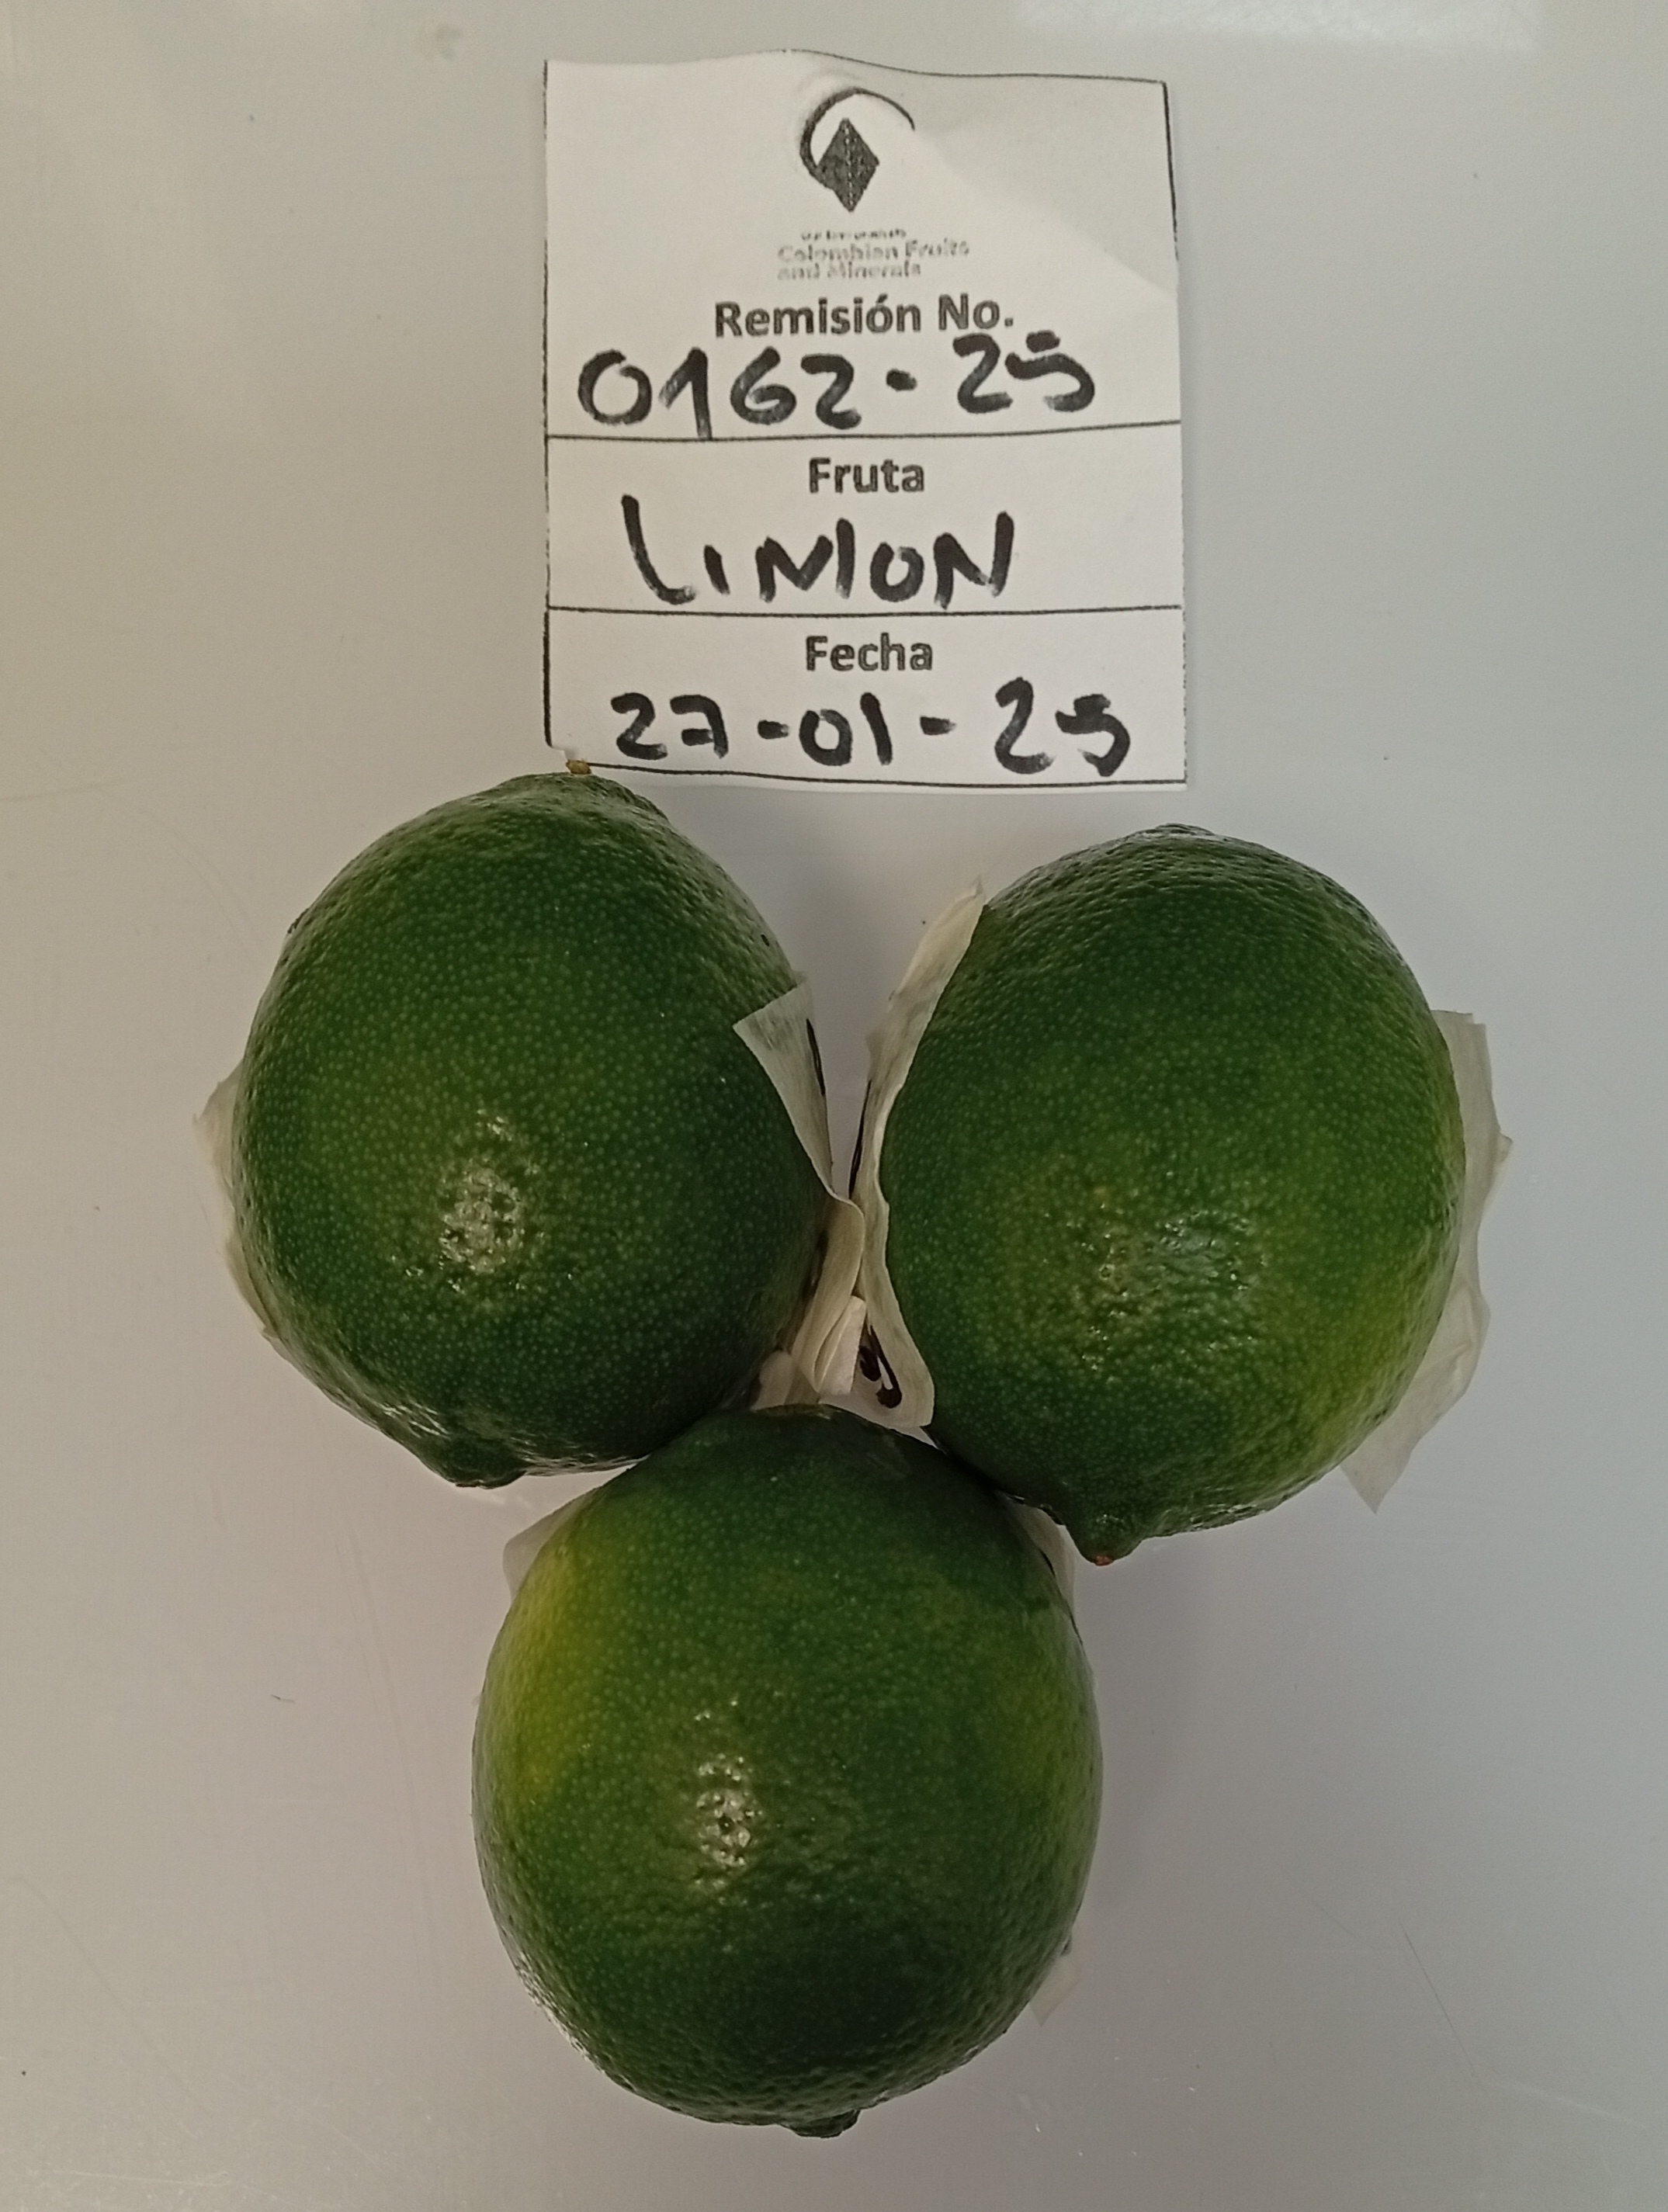 Colombian Fruits
and Minerals
Remisión No.
0162-25
Fruta
LIMON
Fecha
27-01-25